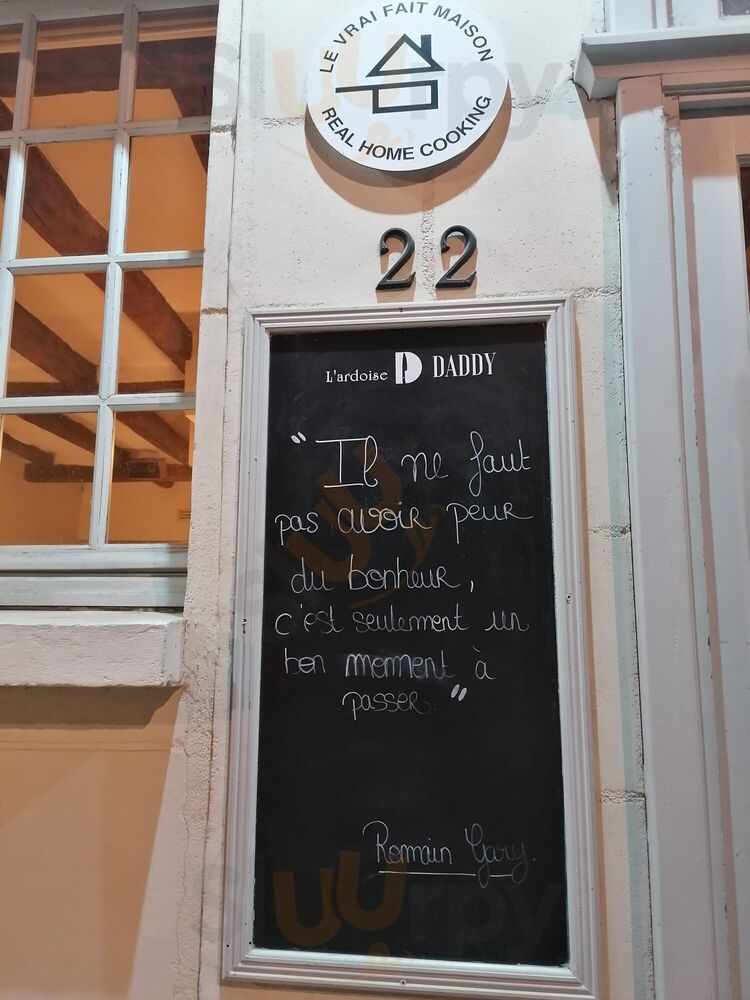 LE VRAI FAIT MAISON
REAL HOME COOKING
22
L'ardoise D DADDY
" Il ne faut
pas avoir peur
du bonheur,
c'est seulement un
bon moment à
passer. "
Romain Gary.
Sluurpy
Sluurpy